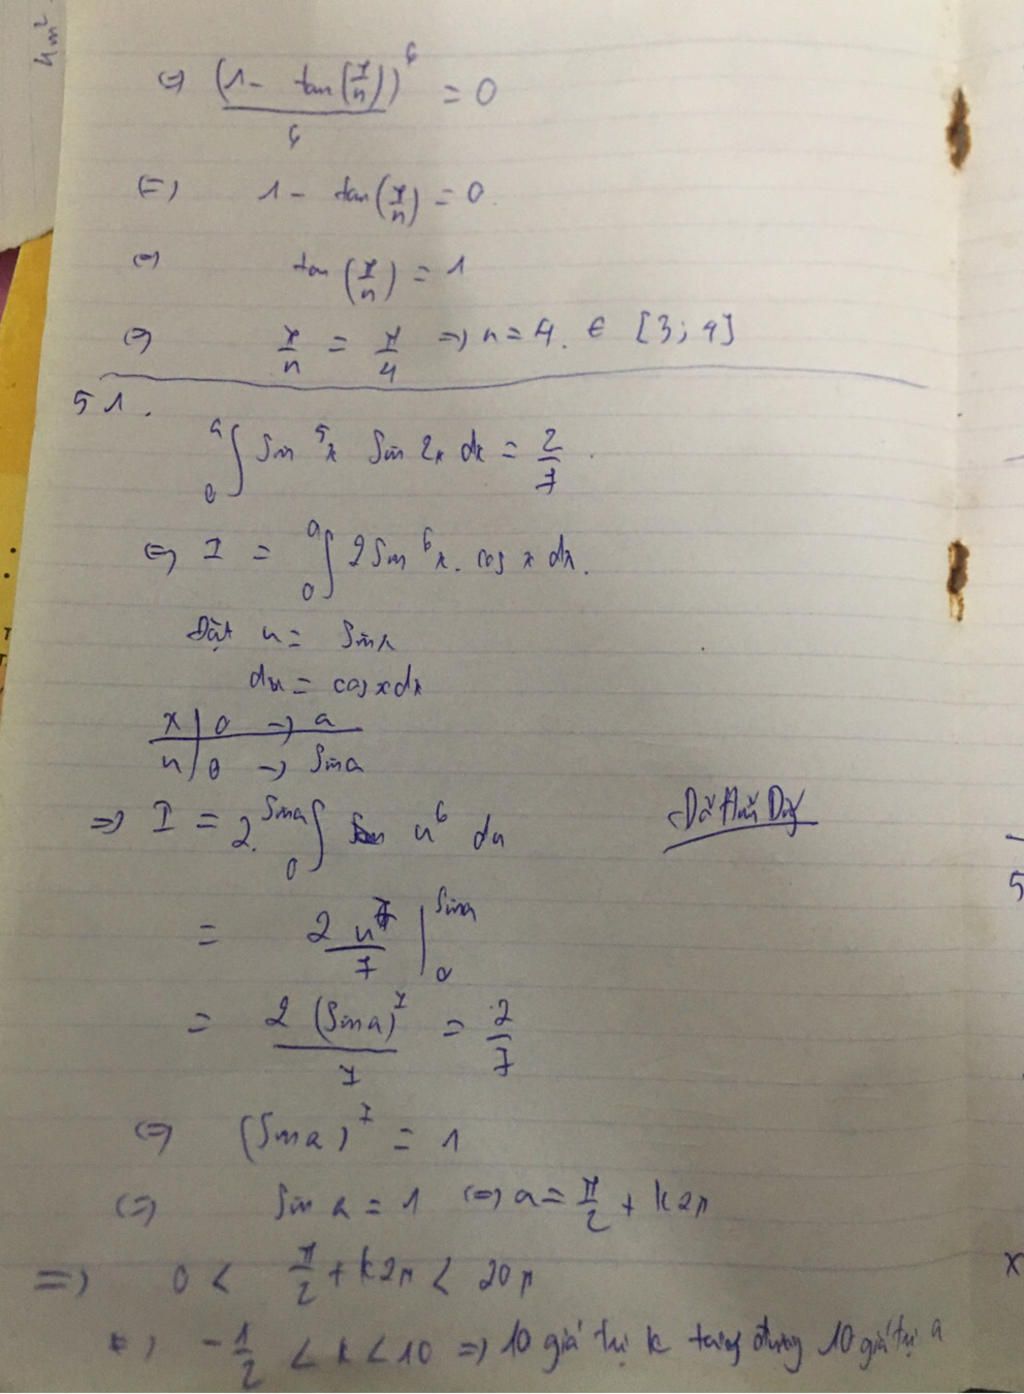 4m²
⇔ (1 - tan(π/n))⁶ / 6 = 0
⇔ 1 - tan(π/n) = 0
⇔ tan(π/n) = 1
⇔ π/n = π/4 ⇒ n = 4. ∈ [3; 4]
51.
₀∫ᵃ sin⁵x sin 2x dx = 2/7.
⇔ I = ₀∫ᵃ 2 sin⁶x. cos x dx.
Đặt u = sinx
du = cosxdx
x | 0 → a
u | 0 → sina
⇒ I = 2. ₀∫ˢⁱⁿᵃ u⁶ du
= 2u⁷/7 |₀ˢⁱⁿᵃ
= 2(sina)⁷/7 = 2/7
⇔ (sina)⁷ = 1
⇔ sin a = 1 ⇔ a = π/2 + k2π
⇒ 0 < π/2 + k2π < 20π
⇔ -1/2 < k < 10 ⇒ 10 giá trị k tương đương 10 giá trị a